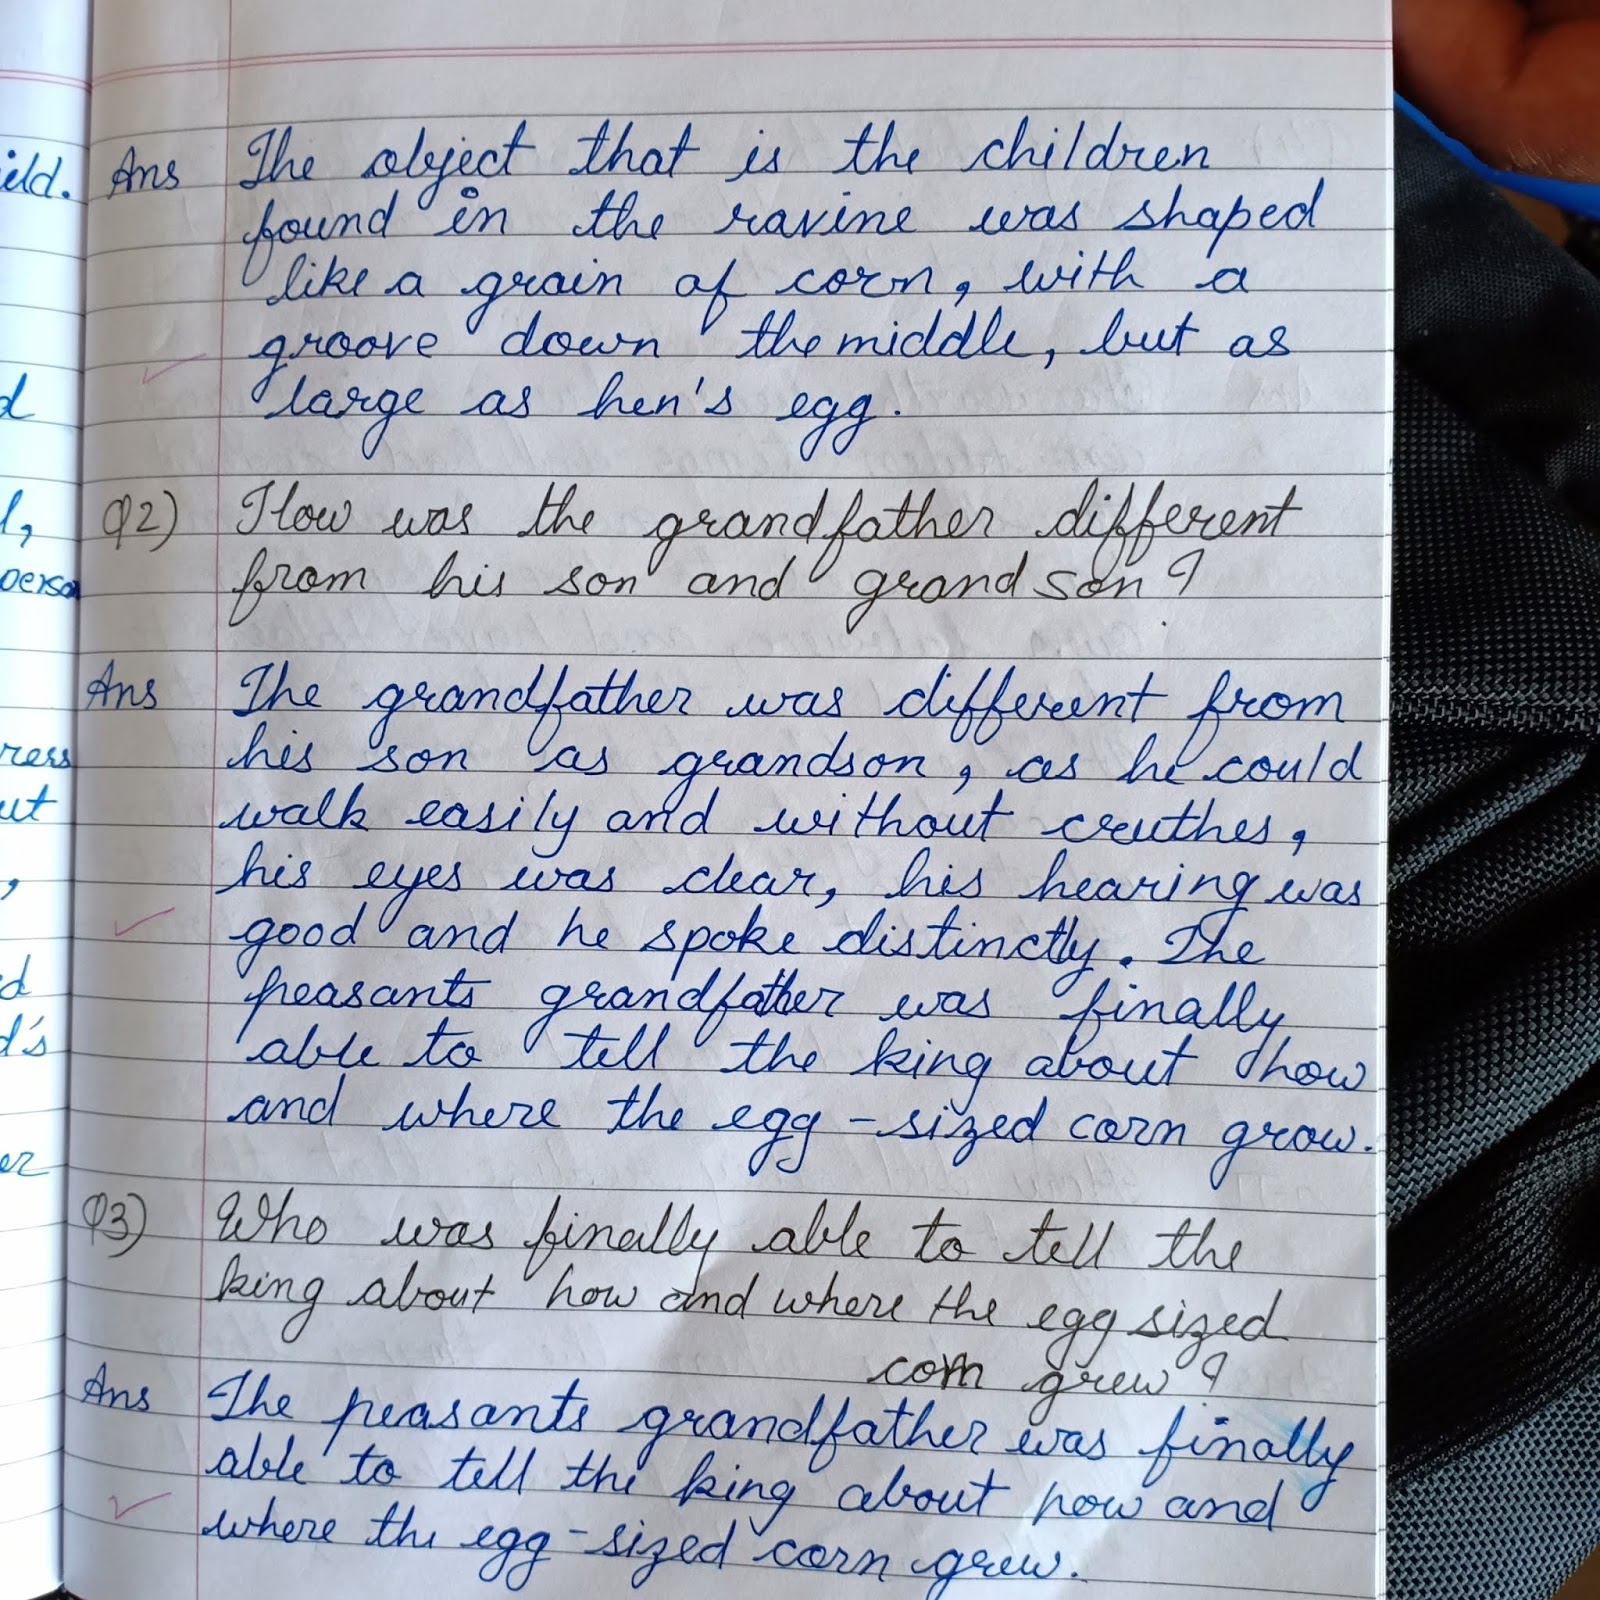 Ans The object that is the children
found in the ravine was shaped
like a grain of corn, with a
groove down the middle, but as
large as hen's egg.
Q2) How was the grandfather different
from his son and grandson?
Ans The grandfather was different from
his son as grandson, as he could
walk easily and without cruthes,
his eyes was clear, his hearing was
good and he spoke distinctly. The
peasants grandfather was finally
able to tell the king about how
and where the egg-sized corn grow.
Q3) Who was finally able to tell the
king about how and where the egg sized
corn grew?
Ans The peasants grandfather was finally
able to tell the king about how and
where the egg-sized corn grew.